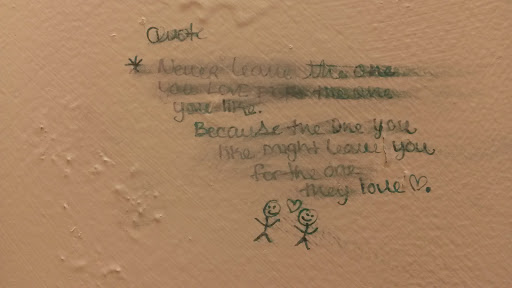 Quote
* Never leave the one
you LOVE for the one
you like.
Because the one you
like might leave you
for the one
they love ♡.